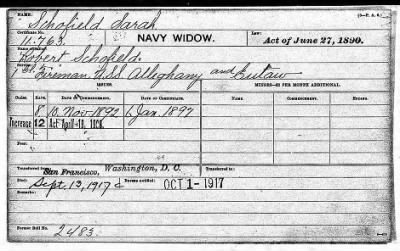 NAME: Schofield Sarah (3-P. A. 8.)
Certificate No.
11.763. NAVY WIDOW. Act of June 27, 1890.
Robert Schofield.
Fireman, U.S.S. Alleghany and Eutaw
ISSUE. MINORS—$2 PER MONTH ADDITIONAL.
Class. Rate. Date of Commencement. Date of Certificate. Name. Commencement. Ending.
8 10. Nov. 1892 6 Jan. 1897
Increase 12 Act April 19, 1908.
Fee:
Transferred from Transferred to
San Francisco, Washington, D. C.
Died: Bureau notified:
Sept. 13, 1917 OCT 1- 1917
Remarks:
Former Roll No.
2483.